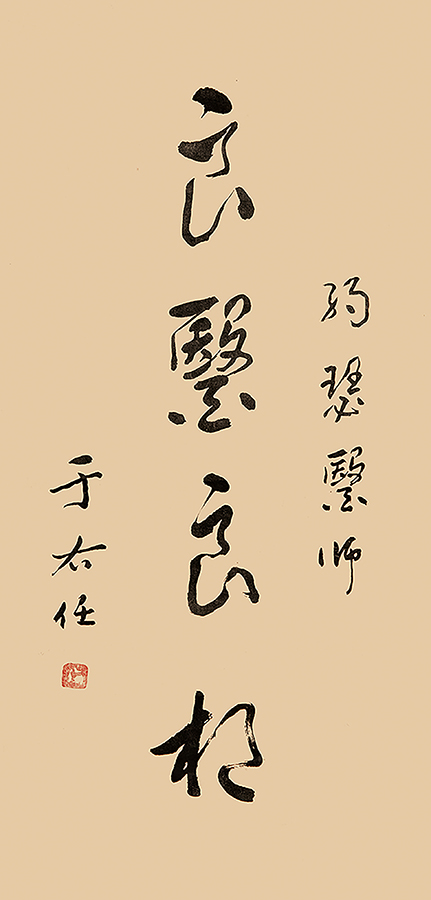 約瑟醫師
良醫良相
于右任